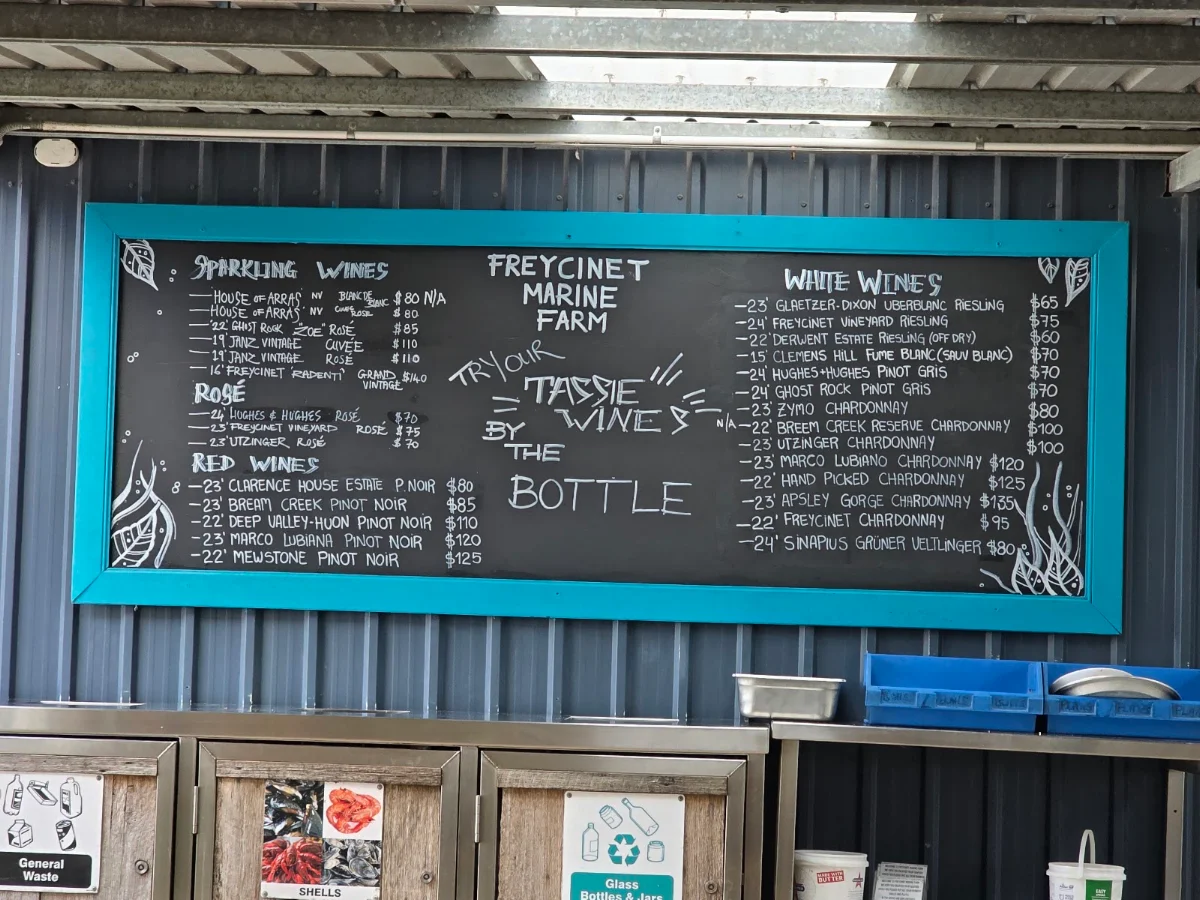 SPARKLING WINES
—HOUSE OF ARRAS NV BLANC DE BLANC $80 N/A
—HOUSE OF ARRAS NV ROSE $80
—22' GHOST ROCK 'ZOE' ROSÉ $85
—19' JANZ VINTAGE CUVÉE $110
—19' JANZ VINTAGE ROSÉ $110
—16' FREYCINET 'RADENTI' GRAND VINTAGE $140
ROSÉ
—24' HUGHES & HUGHES ROSÉ $70
—23' FREYCINET VINEYARD ROSÉ $75
—23' UTZINGER ROSÉ $70
RED WINES
—23' CLARENCE HOUSE ESTATE P.NOIR $80
—23' BREAM CREEK PINOT NOIR $85
—22' DEEP VALLEY-HUON PINOT NOIR $110
—23' MARCO LUBIANA PINOT NOIR $120
—22' MEWSTONE PINOT NOIR $125
FREYCINET
MARINE
FARM
TRY OUR
TASSIE
WINES
BY
THE
BOTTLE
WHITE WINES
—23' GLAETZER-DIXON UBERBLANC RIESLING $65
—24' FREYCINET VINEYARD RIESLING $75
—22' DERWENT ESTATE RIESLING (OFF DRY) $60
—15' CLEMENS HILL FUME BLANC (SAUV BLANC) $70
—24' HUGHES+HUGHES PINOT GRIS $70
—24' GHOST ROCK PINOT GRIS $70
—23' ZYMO CHARDONNAY $80
N/A—22' BREEM CREEK RESERVE CHARDONNAY $100
—23' UTZINGER CHARDONNAY $100
—23' MARCO LUBIANO CHARDONNAY $120
—22' HAND PICKED CHARDONNAY $125
—23' APSLEY GORGE CHARDONNAY $135
—22' FREYCINET CHARDONNAY $95
—24' SINAPIUS GRÜNER VELTLINGER $80
General
Waste
SHELLS
Glass
Bottles & Jars
MADE WITH
BUTTER